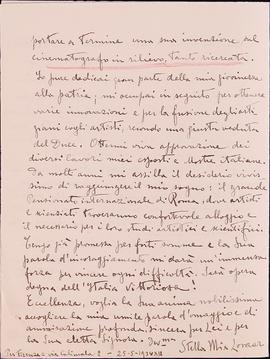 portare a termine una sua invenzione sul
cinematografo in rilievo, tanto ricercata.
Io pure dedicai gran parte della mia giovinezza
alla patria; mi occupai in seguito per ottenere
varie innovazioni e per la fusione degli arti
giani cogli artisti, secondo una giusta veduta
del Duce. Ottenni viva approvazione dei
diversi lavori miei esposti a Mostre italiane.
Da molti anni mi assilla il desiderio vivis
simo di raggiungere il mio sogno: il grande
Pensionato internazionale di Roma, dove artisti
e scienziati troveranno confortevole alloggio e
il necessario per i loro studi artistici e scientifici.
Tengo già promessa per forti somme e la Sua
parola d'incoraggiamento mi darà un'immensa
forza per vincere ogni difficoltà. Sarà opera
degna dell'Italia Vittoriosa!
Eccellenza, voglia la Sua anima nobilissima
accogliere la mia umile parola d'omaggio e di
ammirazione profonda, sincera per Lei e per
la Sua eletta Signora.
Stella Mia
25-5-